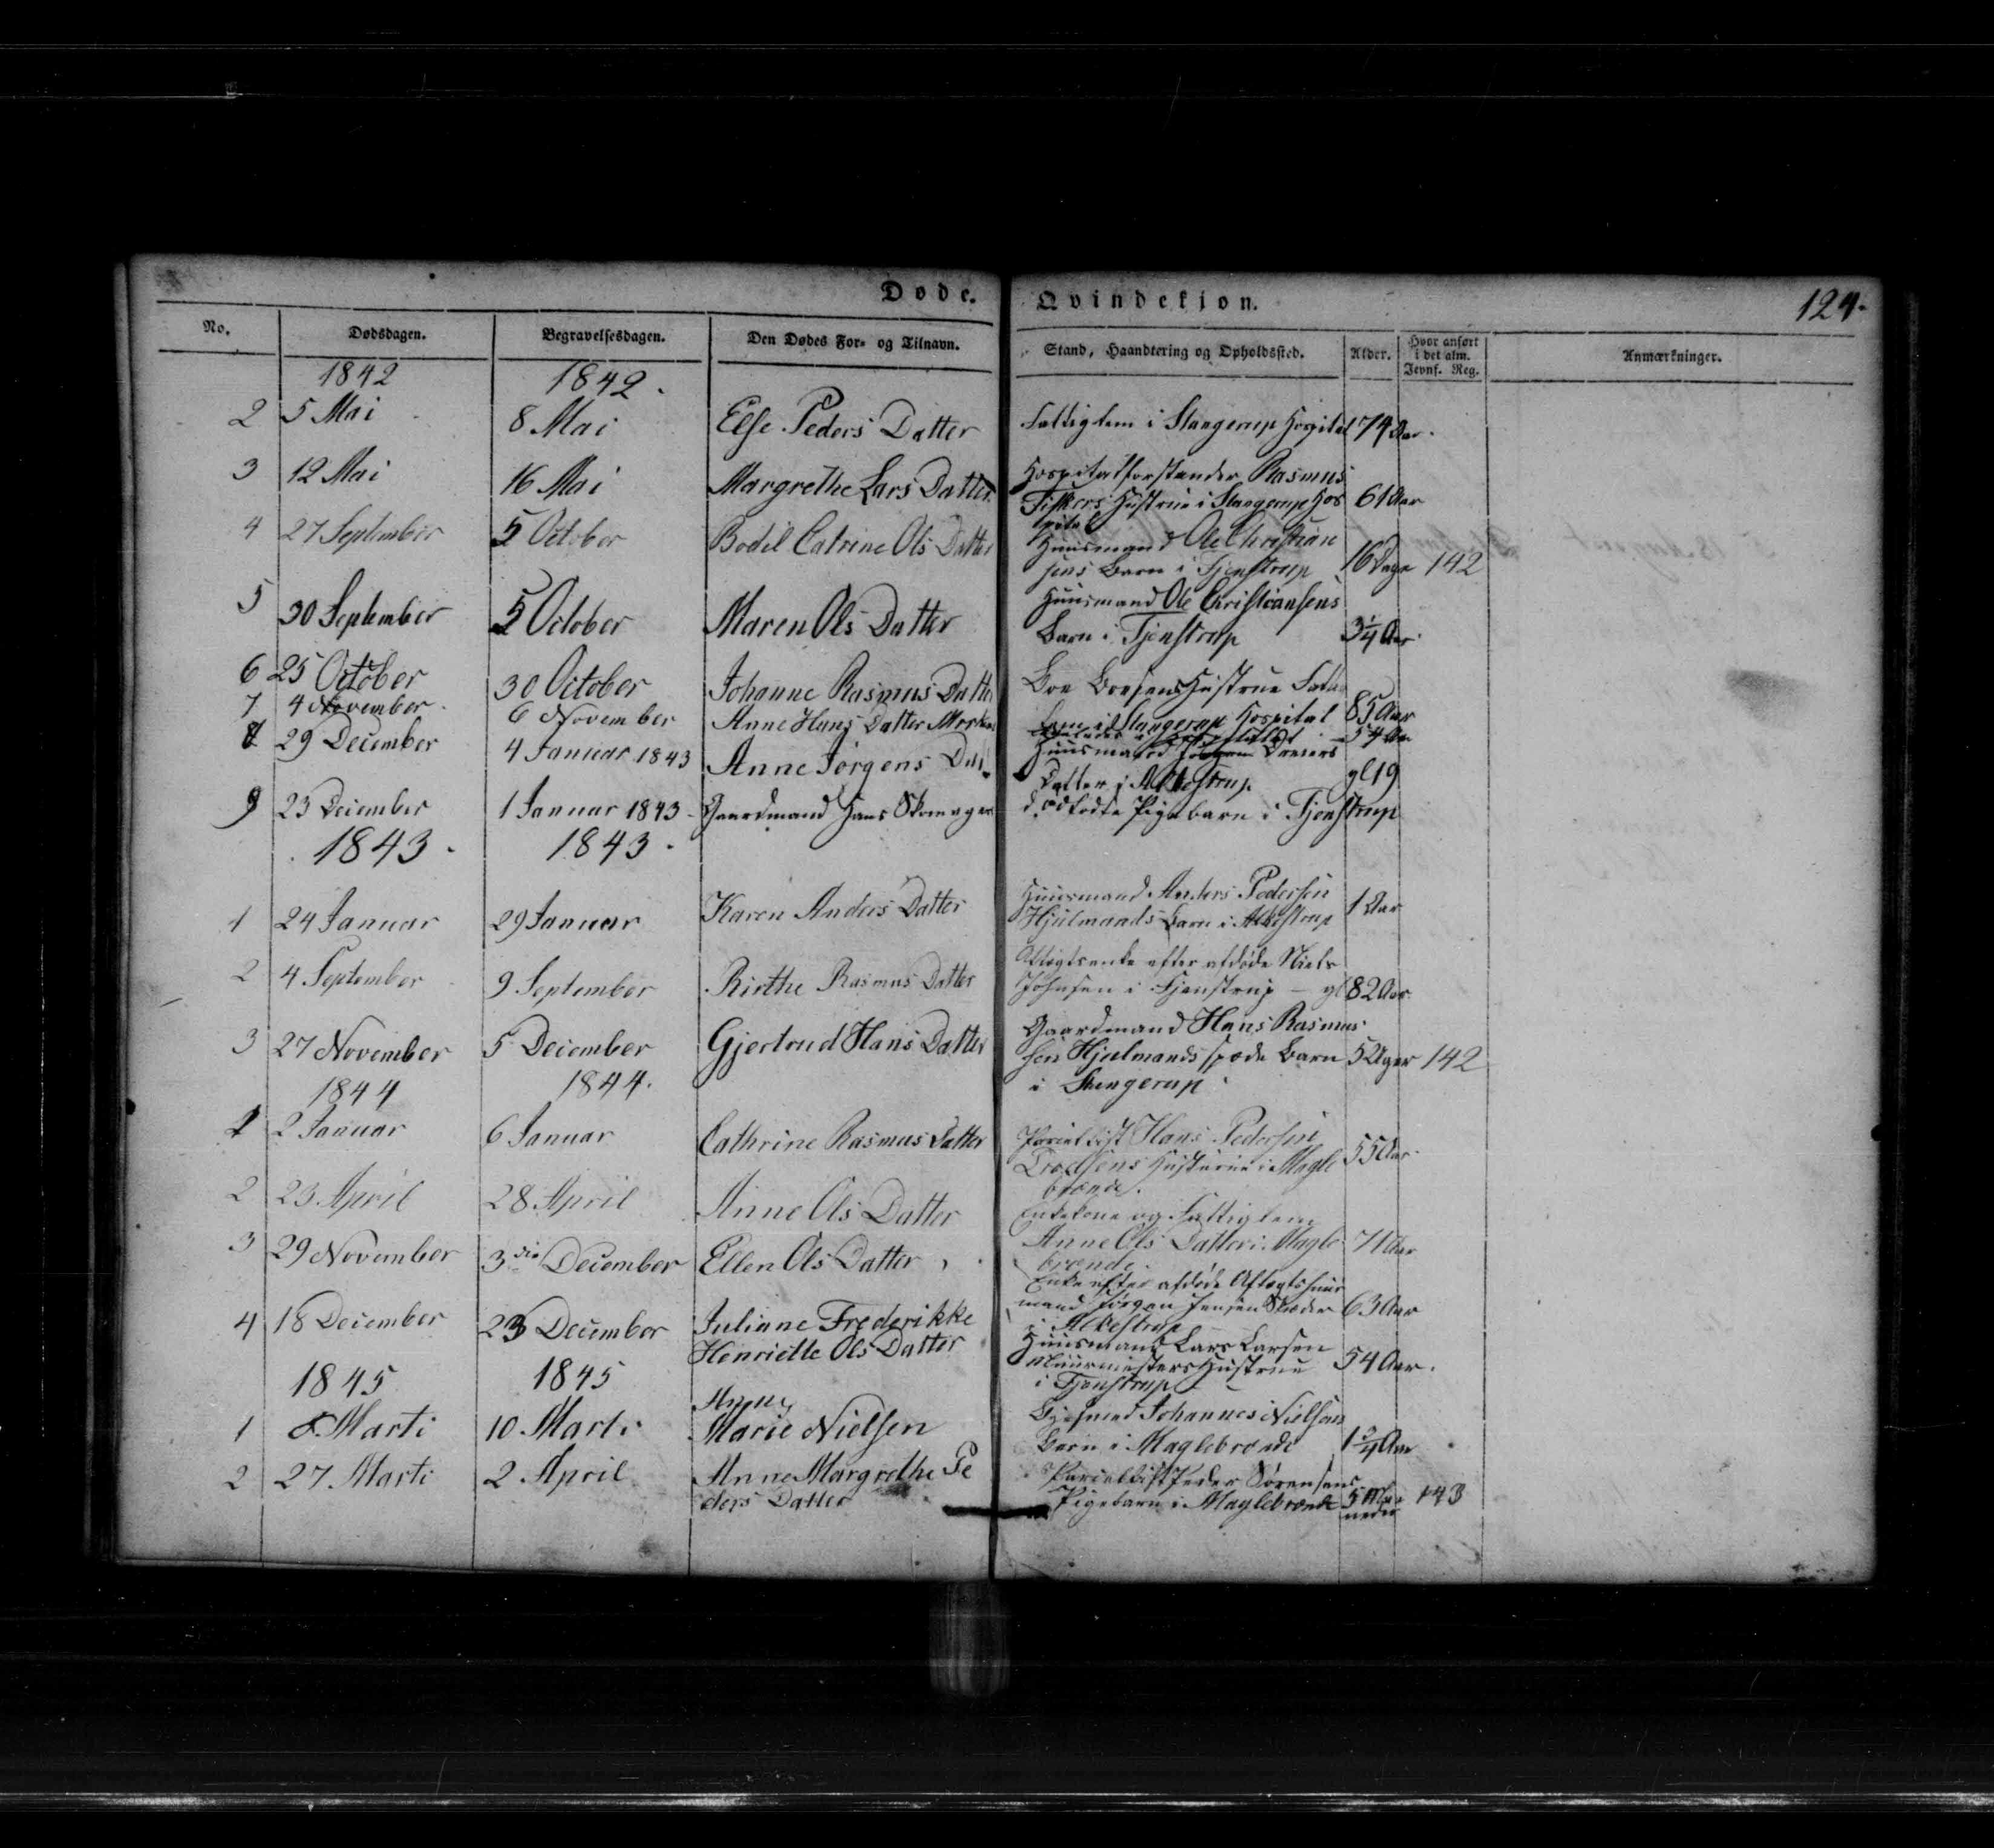 Døde. Qvindekjøn. 124.
No. Dødsdagen. Begravelsesdagen. Den Dødes For- og Tilnavn. Stand, Haandtering og Opholdssted. Alder. Hvor anført i det alm. Jevnf. Reg. Anmærkninger.
1842 1842.
2 5 Mai 8 Mai Else Peders Datter Fattiglem i Stangerup Hospital 74 Aar.
3 12 Mai 16 Mai Margrethe Lars Datter Hospitalforstander Rasmus
Fiskers Hustrue i Stangerup Hos 61 Aar
pital
4 27 September 5 October Bodil Catrine Ols Datter Huusmand Ole Christian
sens Barn i Tjenstrup 16 Dage 142
5 30 September 5 October Maren Ols Datter Huusmand Ole Christiansens
Barn i Tjenstrup 3¼ Aar
6 25 October 30 October Johanne Rasmus Datter Boe Boesens Hustrue Fattig
lem i Stangerup Hospital 85 Aar
7 4 November 6 November Anne Hans Datter 54 Aar
8 29 December 4 Januar 1843 Anne Jørgens Datt. Huusmand Dreiers
Datter i Alkestrup gl 19
9 23 December 1 Januar 1843 - Gaardmand Hans Skomager dødfødte Pigebarn i Tjenstrup
1843. 1843.
1 24 Januar 29 Januar Karen Anders Datter Huusmand Anders Pedersen
Hjulmands Barn i Alkestrup 1 Aar
2 4 September 9 September Birthe Rasmus Datter Aftægtsenke efter afdøde Niels
Johnsen i Tjenstrup - gl 82 Aar
3 27 November 5 December Gjertrud Hans Datter Gaardmand Hans Rasmus
sen Hjulmands spæde Barn 5 Uger 142
i Stangerup
1844 1844.
1 2 Januar 6 Januar Cathrine Rasmus Datter Parcellist Hans Pedersen
Troelsens Hustrue i Magle 55 Aar
brænde.
2 23 April 28 April Anne Ols Datter Enkekone og Fattiglem
Anne Ols Datter i Magle 71 Aar
brænde
3 29 November 3die December Ellen Ols Datter Enke efter afdøde Aftægtshuus
mand Jørgen Jensen 63 Aar
i Alkestrup
4 18 December 23 December Juliane Frederikke
Henriette Ols Datter Huusmand Lars Larsen
Muurmesters Hustrue 54 Aar.
i Tjenstrup
1845 1845
1 8 Marti 10 Marti Anne
Marie Nielsen Bysmed Johannes Nielsens
Barn i Maglebrænde 1¾ Aar
2 27 Marti 2 April Anne Margrethe Pe
ders Datter Parcellist Peder Sørensens
Pigebarn i Maglebrænde 5 Maa
neder 143